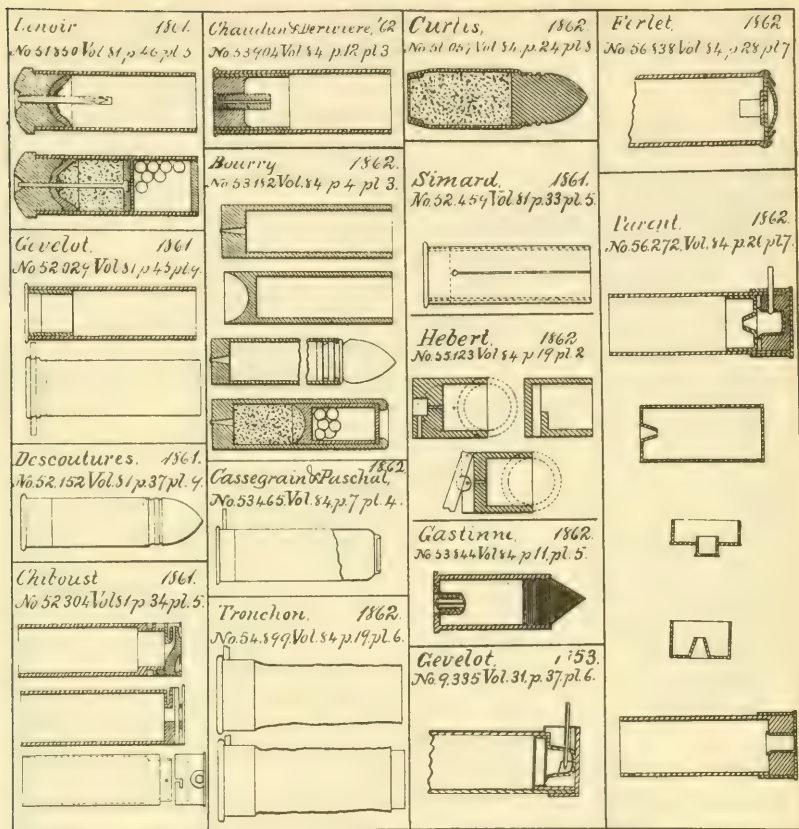 Lenoir 1861.
No 51850 Vol 81 p 46 pl 5
Gevelot. 1861
No 52029 Vol 81 p 45 pl 9.
Descoutures. 1861.
No. 52,152 Vol. 81 p 37 pl. 9.
Chiboust 1861.
No 52304 Vol 81 p 34 pl. 5.
Chaudun & Derwiere, '62
No 53904 Vol 84 p. 12 pl 3
Bourry 1862.
No 53182 Vol. 84 p 4 pl 3.
Gassegrain & Paschal, 1862
No. 53465 Vol. 84 p. 7 pl. 4.
Tronchon. 1862.
No. 54.899. Vol. 84 p. 19. pl. 6.
Curtis, 1862.
Vol 84. p. 24 pl 8
Simard, 1861.
No. 52.459 Vol 81 p. 33 pl. 5.
Hebert. 1862
No. 55123 Vol 84 p 19 pl. 2
Gastinne, 1862.
No 53844 Vol 84 p 11. pl. 5.
Gevelot. 53.
No. 9.335 Vol. 31. p. 37. pl. 6.
Ferlet. 1862
No 56838 Vol 84 p 28 pl 7
Parent. 1862.
No. 56.272. Vol. 84 p. 26 pl 7.